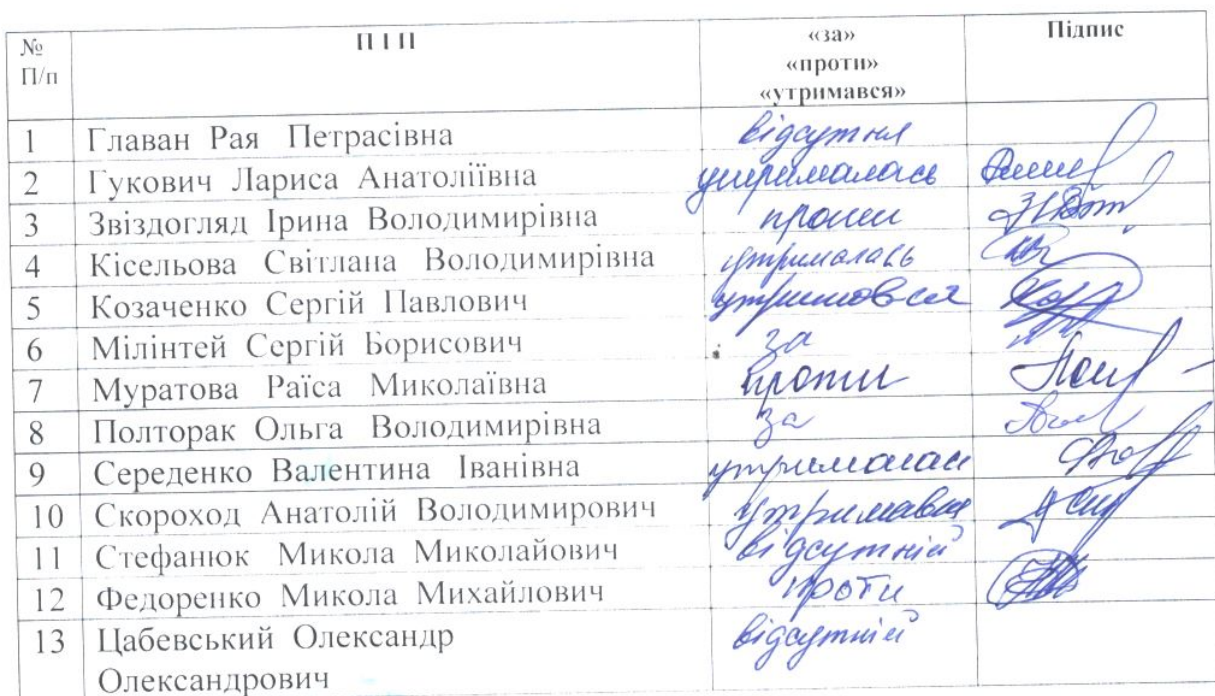 № П І П «за» Підпис
П/п «проти»
«утримався»
1 Главан Рая Петрасівна відсутня
2 Гукович Лариса Анатоліївна утрималась
3 Звіздогляд Ірина Володимирівна проти
4 Кісельова Світлана Володимирівна утрималась
5 Козаченко Сергій Павлович утримовся
6 Мілінтей Сергій Борисович за
7 Муратова Раїса Миколаївна проти
8 Полторак Ольга Володимирівна за
9 Середенко Валентина Іванівна утрималась
10 Скороход Анатолій Володимирович утримався
11 Стефанюк Микола Миколайович відсутній
12 Федоренко Микола Михайлович проти
13 Цабевський Олександр відсутній
Олександрович